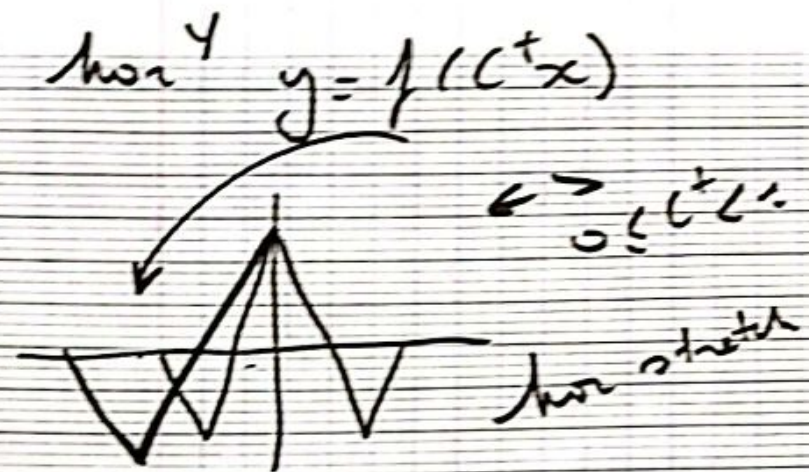 hor y y = f(c⁺x)
← →
0 ≤ c⁺ < 1
hor stretch